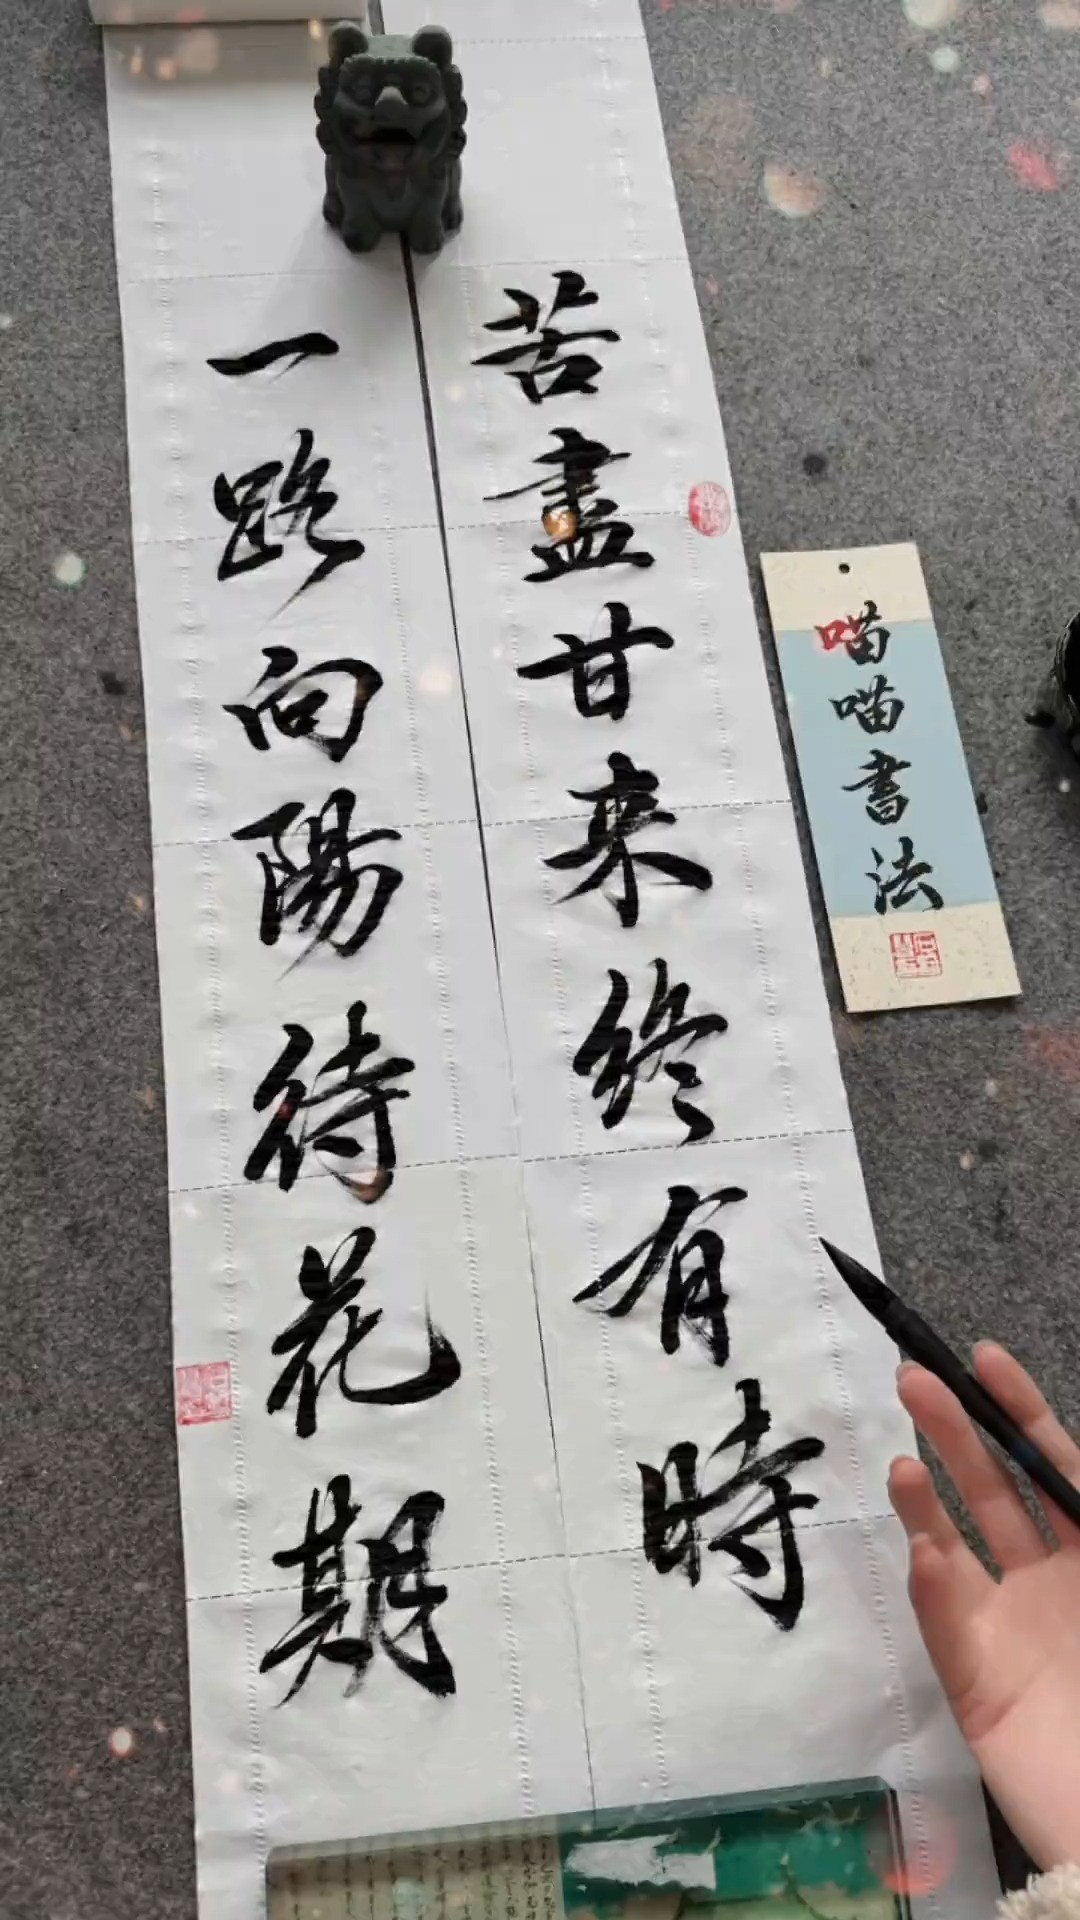 苦盡甘来終有時
一路向陽待花期
喵喵書法